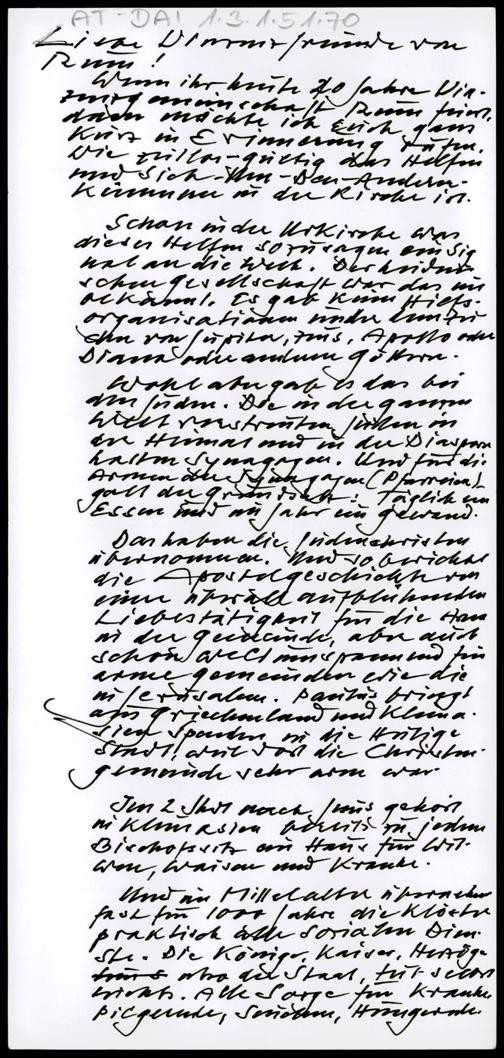 AT-DAI 1.3.1.5.1.70
Liebe Vinzenzfreunde von
Rum!
Wenn ihr heute 20 Jahre Vin-
zenzgemeinschaft Rum feiert,
dann möchte ich Euch ganz
kurz in Erinnerung rufen,
wie zeitlos-gültig das Helfen
und Sich-Um-Den-Andern-
Kümmern in der Kirche ist.
Schon in der Urkirche war
dieses Helfen sozusagen einzig
mal an die Welt. Der heidni-
schen Gesellschaft war das un
bekannt. Es gab keine Hilfs-
organisationen
von Jupiter, Zeus, Apollo oder
Diana oder anderen Göttern.
Wohl aber gab es das bei
den Juden. Die in der ganzen
Welt verstreuten Juden in
der Heimat und in der Diaspora
hatten Synagogen. Und für die
Armen der Synagogen (Pfarreien)
galt der Grundsatz: Täglich ein
Essen und im Jahr ein Gewand.
Das haben die Judenchristen
übernommen. Und so berichtet
die Apostelgeschichte von
einer überall aufblühenden
Liebestätigkeit für die Armen
in der Gemeinde, aber auch
schon weltumspannend für
arme Gemeinden wie die
in Jerusalem. Paulus bringt
aus Griechenland und Kleina-
sien Spenden in die Heilige
Stadt, weil dort die Christen-
gemeinde sehr arm war.
Im 2. Jhdt nach Jesus gehört
in Kleinasien bereits zu jedem
Bischofssitz ein Haus für Wit-
wen, Waisen und Kranke.
Und im Mittelalter übernehmen
fast für 1000 Jahre die Klöster
praktisch alle sozialen Dien-
ste. Die Könige, Kaiser, Herzöge
also der Staat, tut selbst
nichts. Alle Sorge für Kranke
Pilgernde, Hungernde